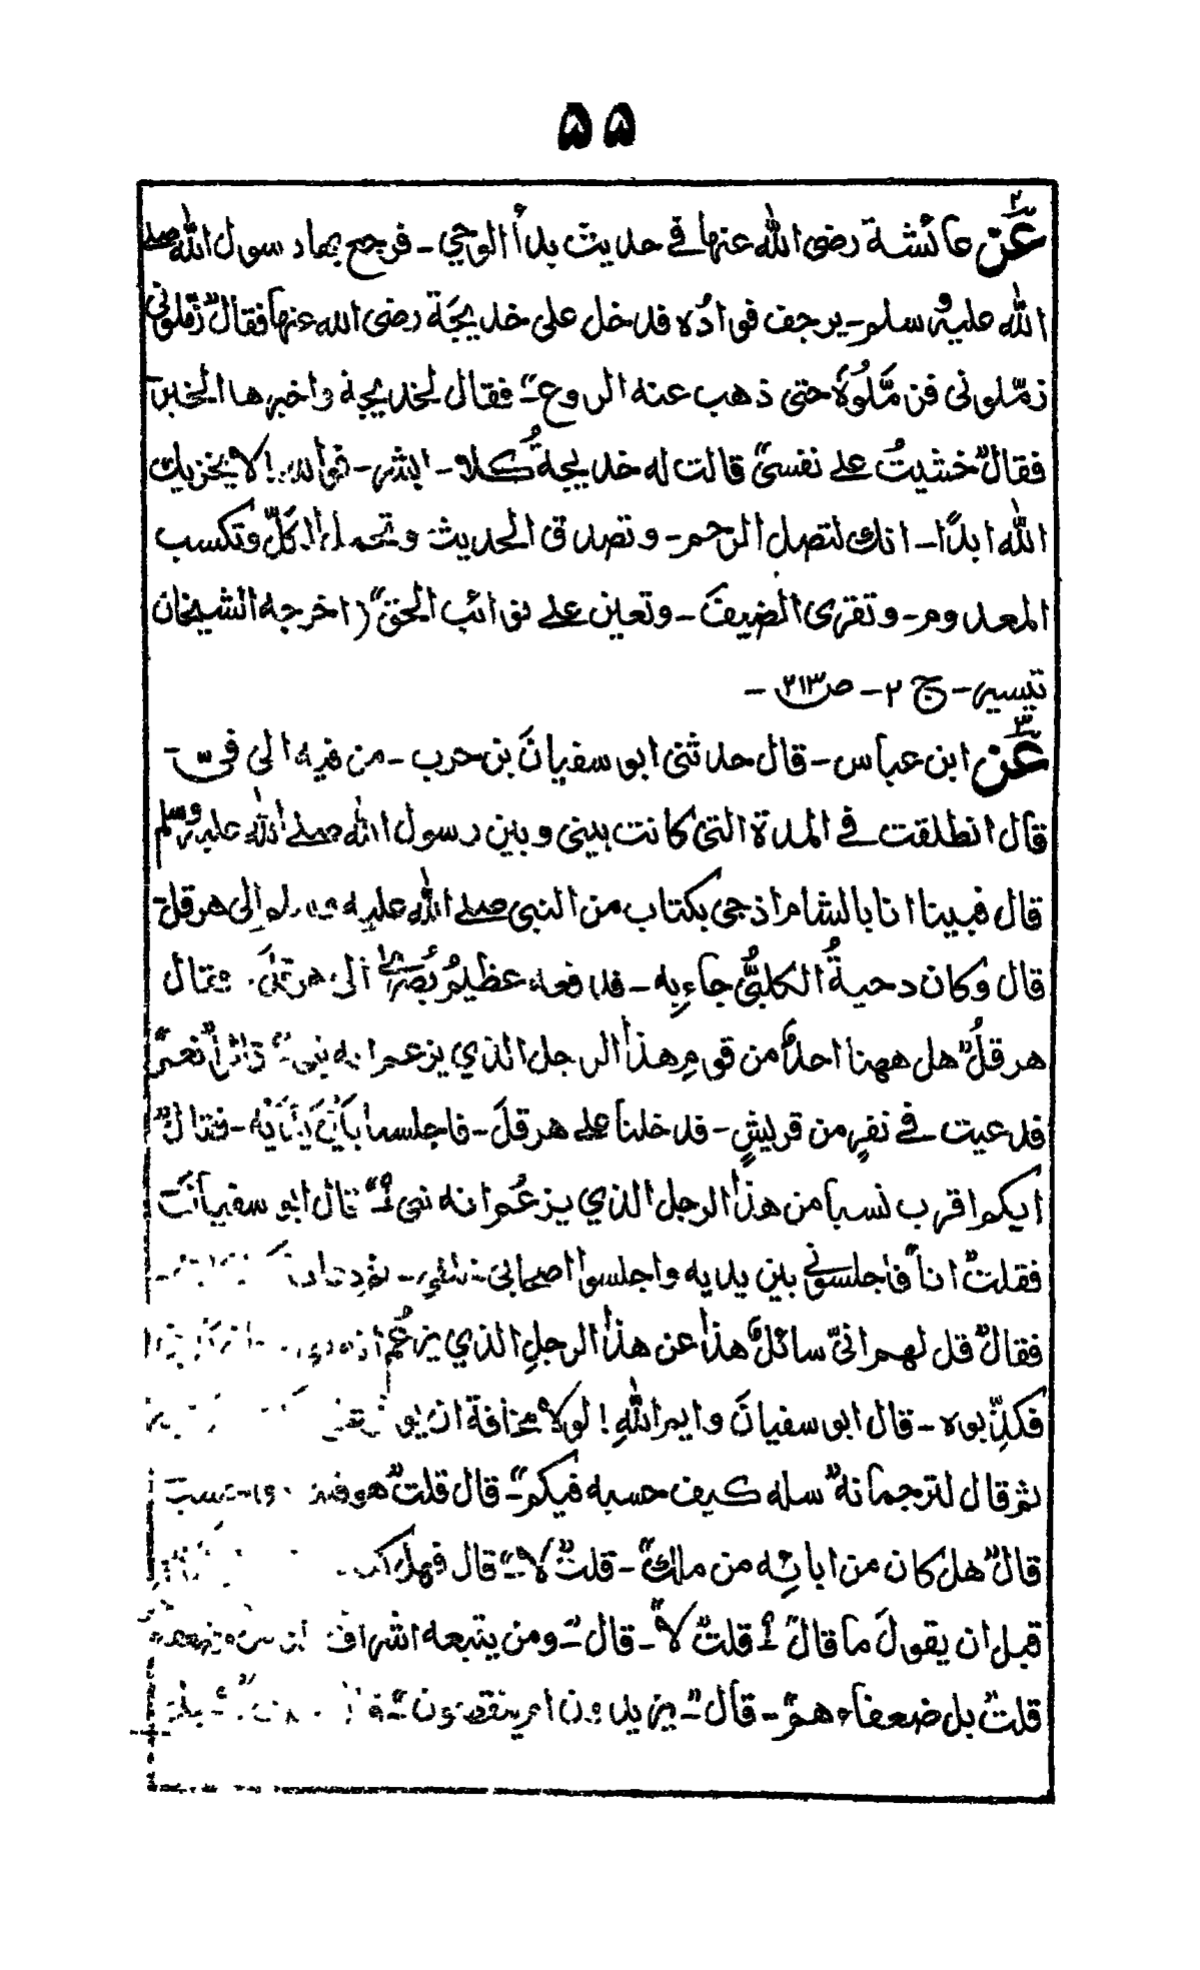 ۵۵
۲
عَنْ عائشة رضی الله عنها فی حدیث بدأ الوحی۔ فرجع بها رسول الله صلے
الله علیه وسلم۔ یرجف فوادُه فدخل علی خدیجَة رضی الله عنها فقال زمّلونی
زمّلونی فزمَّلُوهُ حتی ذهب عنه الروع۔ فقال لخدیجة واخبرها الخبر
فقال خشیتُ علے نفسی قالت له خدیجةُ کلا۔ ابشر۔ فوالله! لا یخزیك
الله ابدًا۔ انك لتصل الرحم۔ وتصدق الحدیث وتحمل الکَلَّ وتکسب
المعدوم۔ وتقری الضیفَ۔ وتعین علے نوائب الحق (اخرجه الشیخان
تیسیر۔ ج ۲۔ ص ۲۱۳۔
۳
عَنْ ابن عباس۔ قال حدثنی ابو سفیانَ بن حرب۔ من فیه الی فیّ۔
قال انطلقت فی المدة التی کانت بینی وبین رسول الله صلے الله علیه وسلم
قال فبینا انا بالشام اذ جی بکتاب من النبی صلے الله علیه وسلم الی هرقل
قال وکان دحیةُ الکلبیُّ جاءبِه۔ فدفعه عظیمُ بُصرٰے الی هرقلَ۔ فقال
هرقلُ هل ههنا احدٌ من قومِ هذا الرجل الذی یزعم انه نبی قال نعم
فدعیت فی نفرٍ من قریشٍ۔ فدخلنا علے هرقلَ۔ فاجلسنا بَیْنَ یَدَیْه۔ فقال
ایکم اقرب نسبا من هذا الرجل الذی یزعُم انه نبی؟ قال ابو سفیانَ
فقلت انا فاجلسونی بین یدیه واجلسوا اصحابی خلفی۔
فقال قل لهم انیّ سائلٌ هذا عن هذا الرجلِ الذی یزعُم انه
فکذِّبوه۔ قال ابو سفیانَ وایم اللهِ! لولا مخافة ان
ثم قال لترجمانه سله کیف حسبه فیکم۔ قال قلت هو فینا ذو حسب
قال هل کان من ابائِه من ملك۔ قلت لا۔ قال فهل
قبل ان یقولَ ما قال؟ قلت لا۔ قال۔ ومن یتبعه اشراف
قلت بل ضعفاءهم۔ قال۔ یزیدون ام ینقصون۔